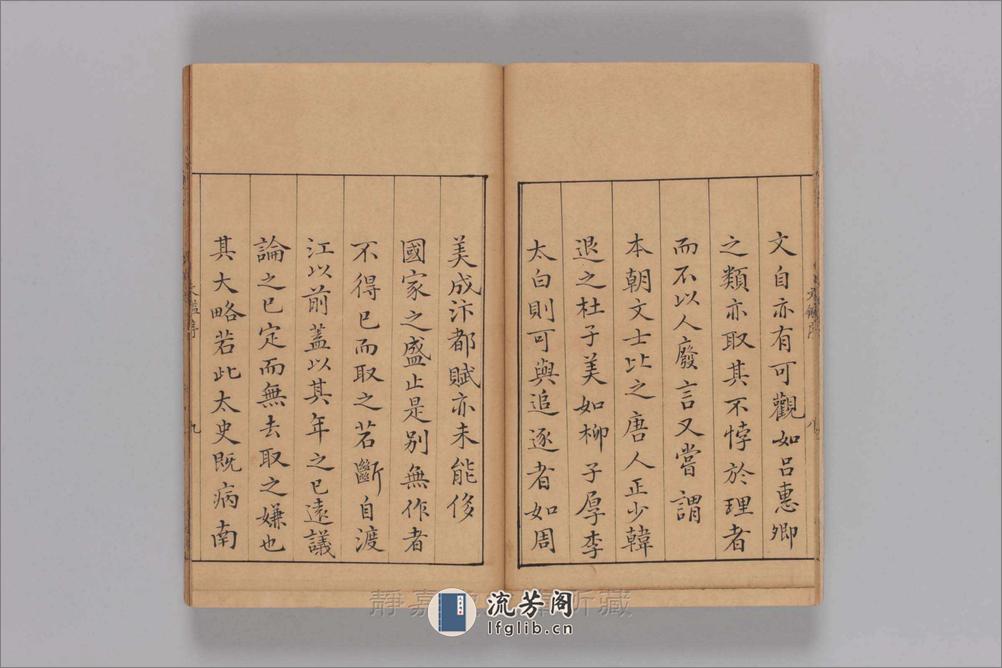 文自亦有可觀如吕惠卿
之類亦取其不悖於理者
而不以人廢言又嘗謂
本朝文士比之唐人正少韓
退之杜子美如栁子厚李
太白則可與追逐者如周
美成汴都賦亦未能侈
國家之盛止是别無作者
不得已而取之若斷自渡
江以前蓋以其年之已逺議
論之已定而無去取之嫌也
其大略若此太史既病南
文鑑序
八
文鑑序
九
靜嘉 所藏
流芳阁
lfglib.cn